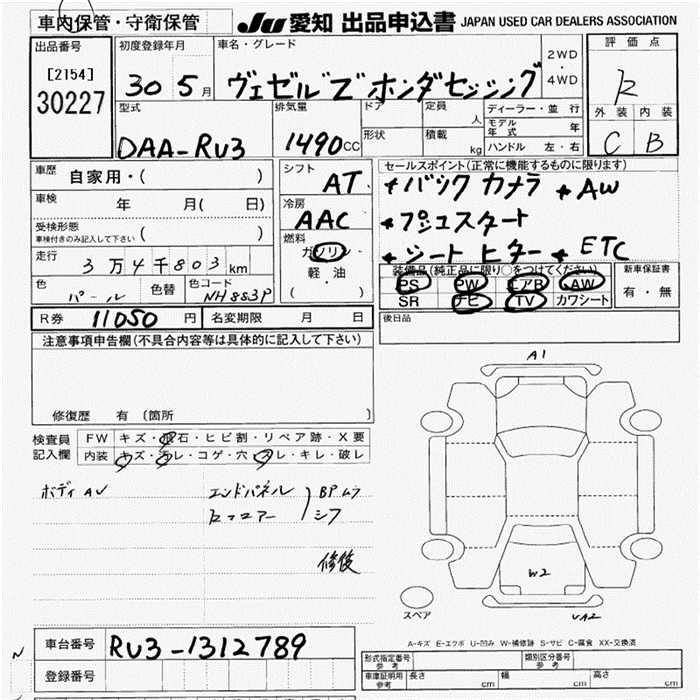 車内保管・守衛保管
JU 愛知 出品申込書 JAPAN USED CAR DEALERS ASSOCIATION
出品番号
[2154]
30227
初度登録年月
30 5月
車名・グレード
ヴェゼル Z ホンダセンシング
2WD
・
4WD
評価点
R
外装 内装
C B
型式
DAA-RU3
排気量
1490cc
ドア
形状
定員
人
積載
kg
ディーラー・並行
モデル年式 年
ハンドル 左・右
車歴 自家用・( )
車検 年 月( 日)
受検形態
車検付きのみ記入して下さい ( )
走行 3万4千803km
色 パール
色替
色コード NH883P
シフト
AT
冷房
AAC
燃料
ガソリン・
軽・油
( )
セールスポイント(正常に機能するものに限ります)
* バック カメラ * AW
* プシュスタート
* シート ヒター * ETC
装備品(純正品に限り〇をつけてください)
PS PW エアB AW
SR ナビ TV カワシート
新車保証書
有・無
後日品
R券 11050円
名変期限 月 日
注意事項申告欄(不具合内容等は具体的に記入して下さい)
修復歴 有 〔箇所 〕
検査員記入欄
FW キズ・飛石・ヒビ割・リペア跡・X要
内装 キズ・汚レ・コゲ・穴・スレ・キレ・破レ
ボディ AU
エンドパネル
BPムラ
シフ
修復
A1
W2
UA2
スペア
A-キズ E-エクボ U-凹み W-補修跡 S-サビ C-腐食 XX-交換済
N
車台番号 RU3-1312789
登録番号
形式指定番号
参考
類別区分番号
参考
車庫証明用
参考
長さ cm 幅 cm 高さ cm